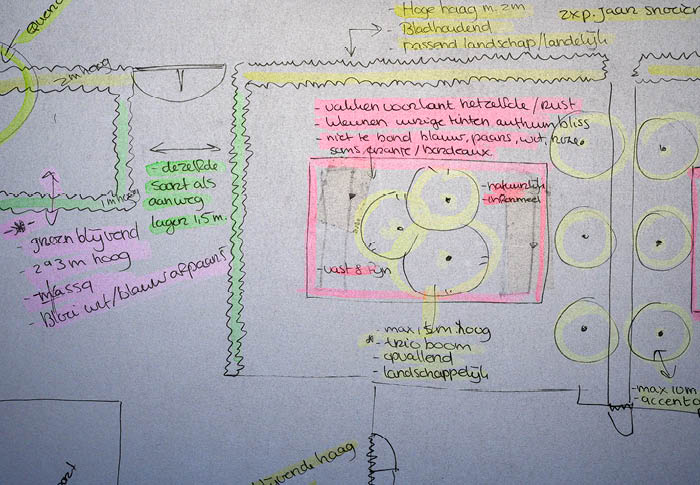 - Hoge haag m. 2m
- Bladhoudend
- passend landschap/landelijk
2xp. jaar snoeien
2m hoog
- vakken voorkant hetzelfde / rust
- kleuren wazige tinten, autumn bliss
- niet te bond blauw, paars, wit, roze
soms oranje / bordeaux
- dezelfde
soort als
aanweg
lager 1,5 m.
1m hoog
- natuurlijk
- informeel
- groenblijvend
- 2 a 3 m hoog
- massa
- Bloei wit/blauw of paars
- vast & fijn
- max 15m hoog
* trio boom
- opvallend
- landschappelijk
- max 10m
- accent
blijvende haag